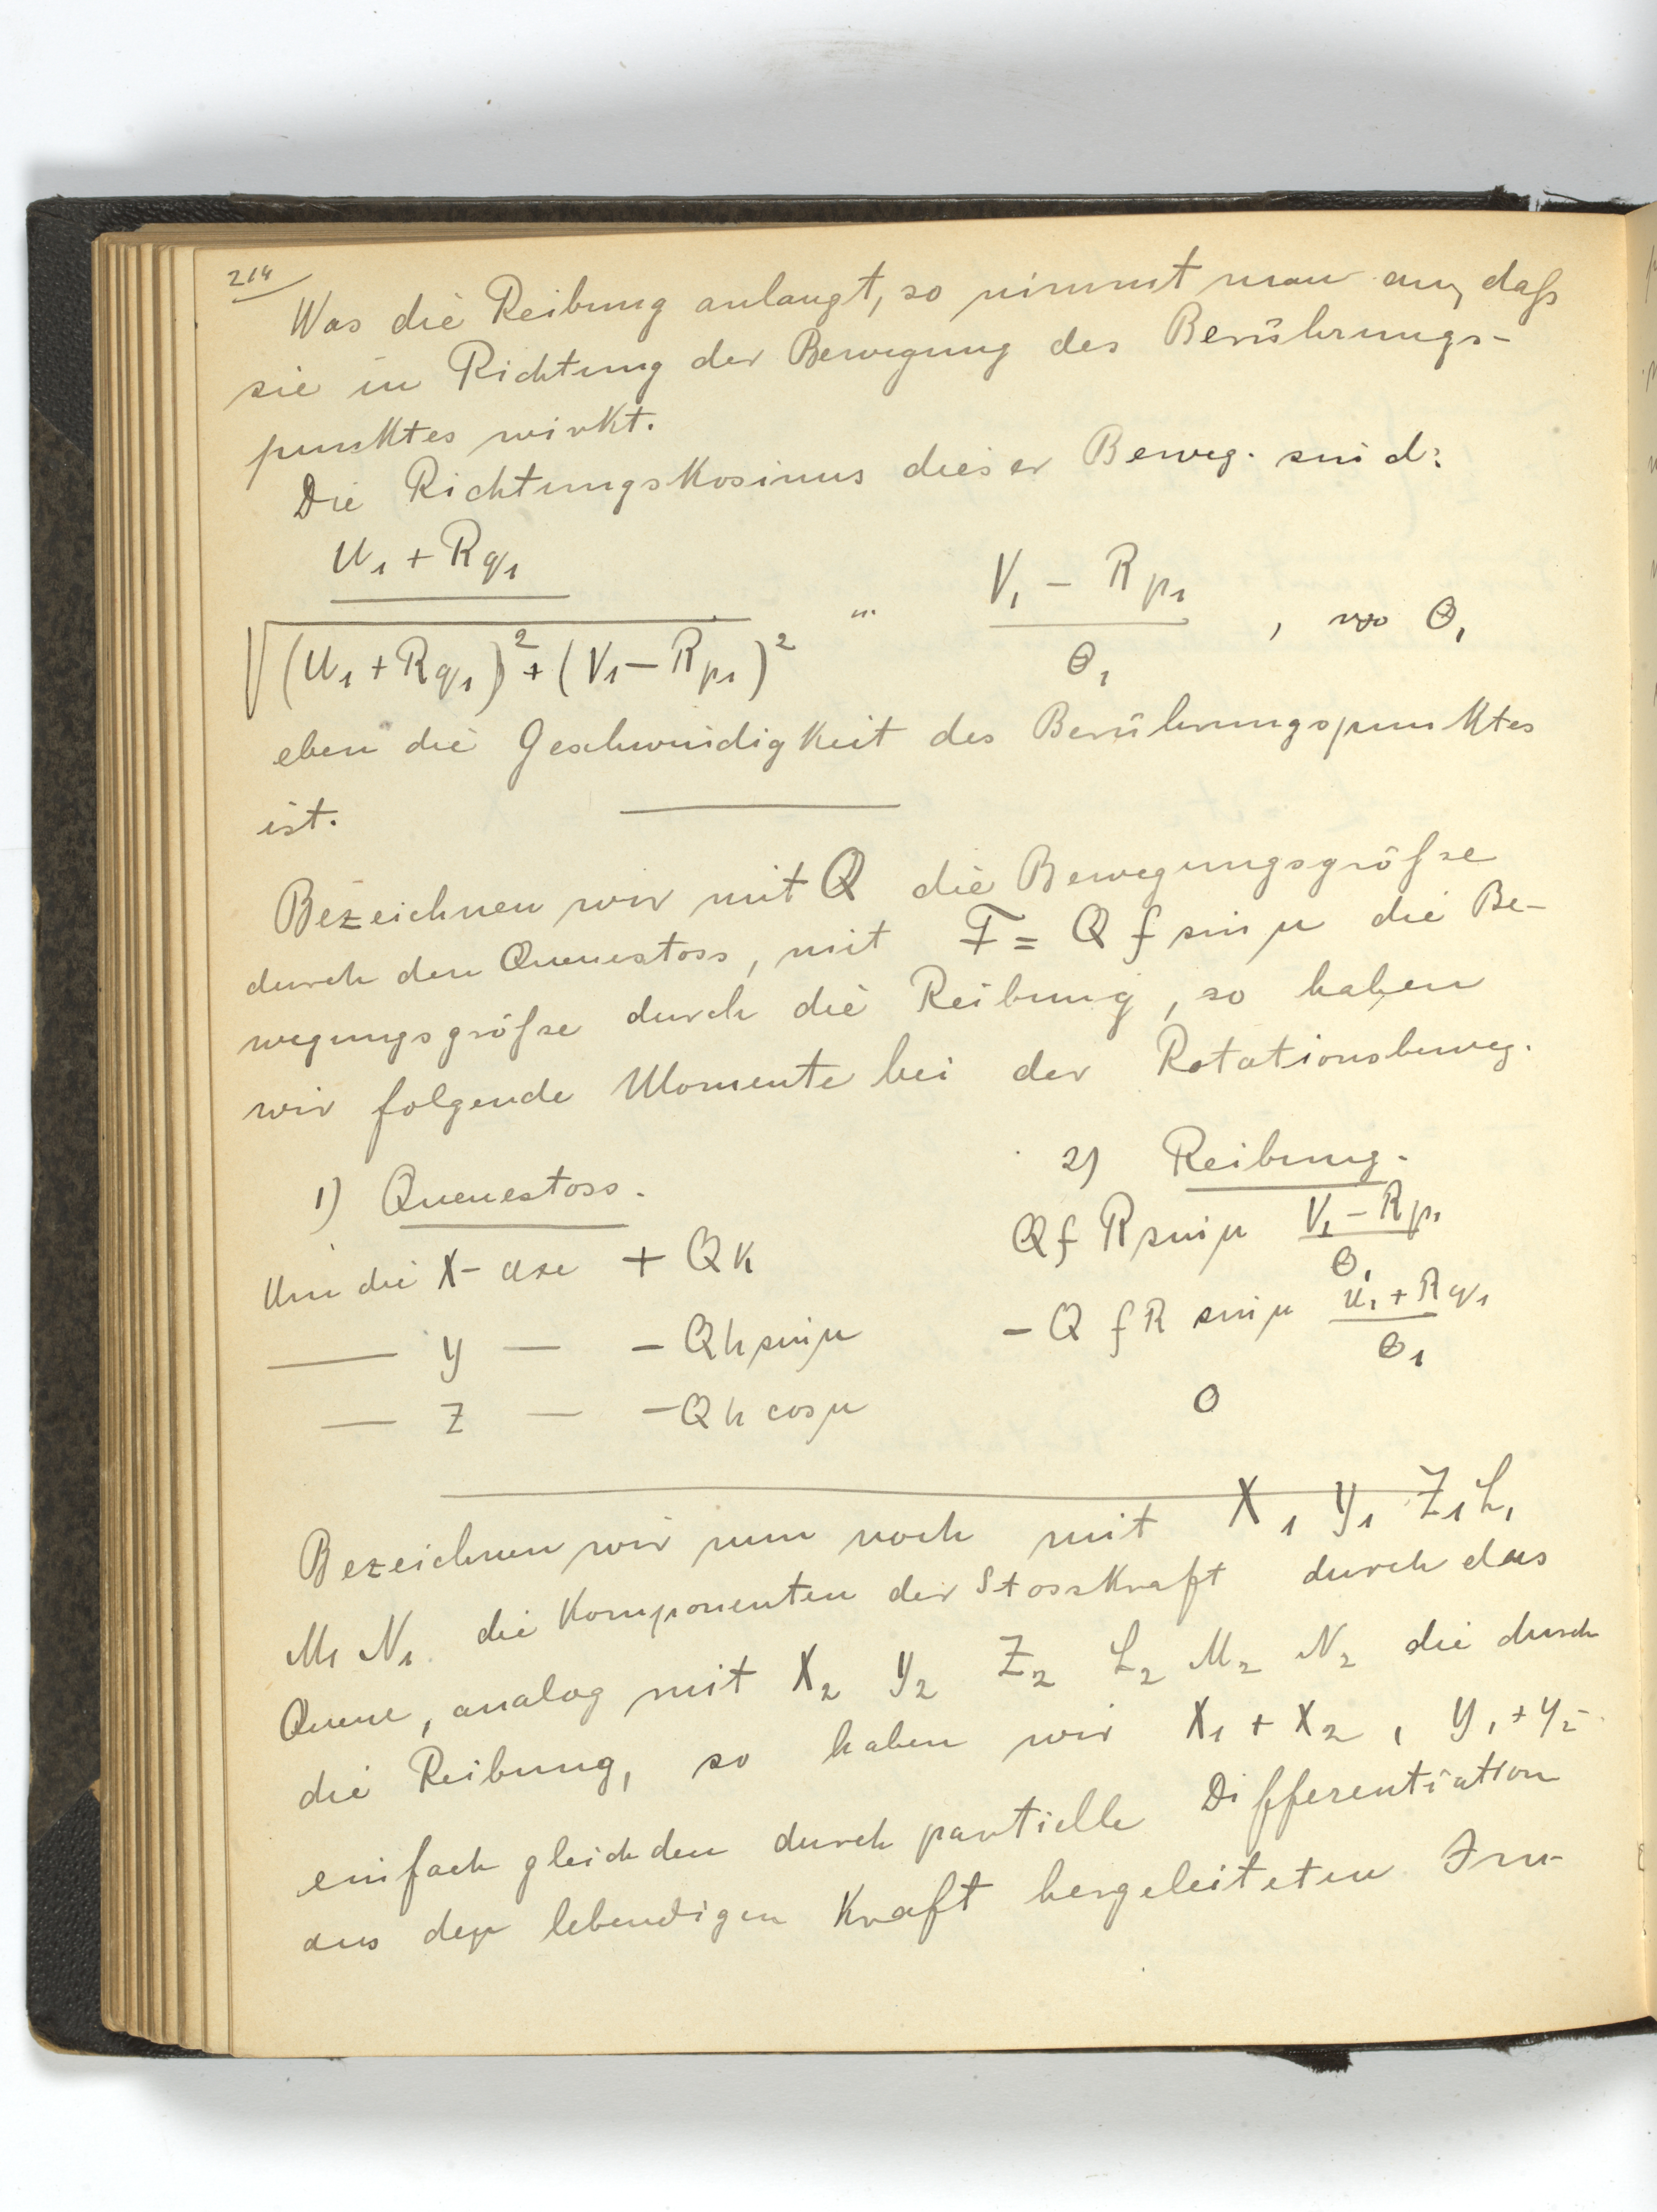 214
Was die Reibung anlangt, so nimmt man an, daß
sie in Richtung der Bewegung des Berührungs-
punktes wirkt.
Die Richtungskosinus dieser Beweg. sind:
u₁ + Rq₁ / √(u₁ + Rq₁)² + (V₁ − Rp₁)² ... V₁ − Rp₁ / Θ₁ , wo Θ₁
eben die Geschwindigkeit des Berührungspunktes
ist.
Bezeichnen wir mit Q die Bewegungsgröße
durch den Queuestoss, mit F = Q f sin μ die Be-
wegungsgröße durch die Reibung, so haben
wir folgende Momente bei der Rotationsbeweg.
1) Queuestoss. 2) Reibung.
Um die X-axe + Qk Q f R sin μ V₁ − Rp₁ / Θ₁
— y — − Qh sin μ − Q f R sin μ u₁ + Rq₁ / Θ₁
— z — − Qh cos μ 0
Bezeichnen wir nun noch mit X₁ Y₁ Z₁ L₁
M₁ N₁ die Komponenten der Stosskraft durch das
Queue, analog mit X₂ Y₂ Z₂ L₂ M₂ N₂ die durch
die Reibung, so haben wir X₁ + X₂ , Y₁ + Y₂ -
einfach gleich den durch partielle Differentiation
aus der lebendigen Kraft hergeleiteten Im-